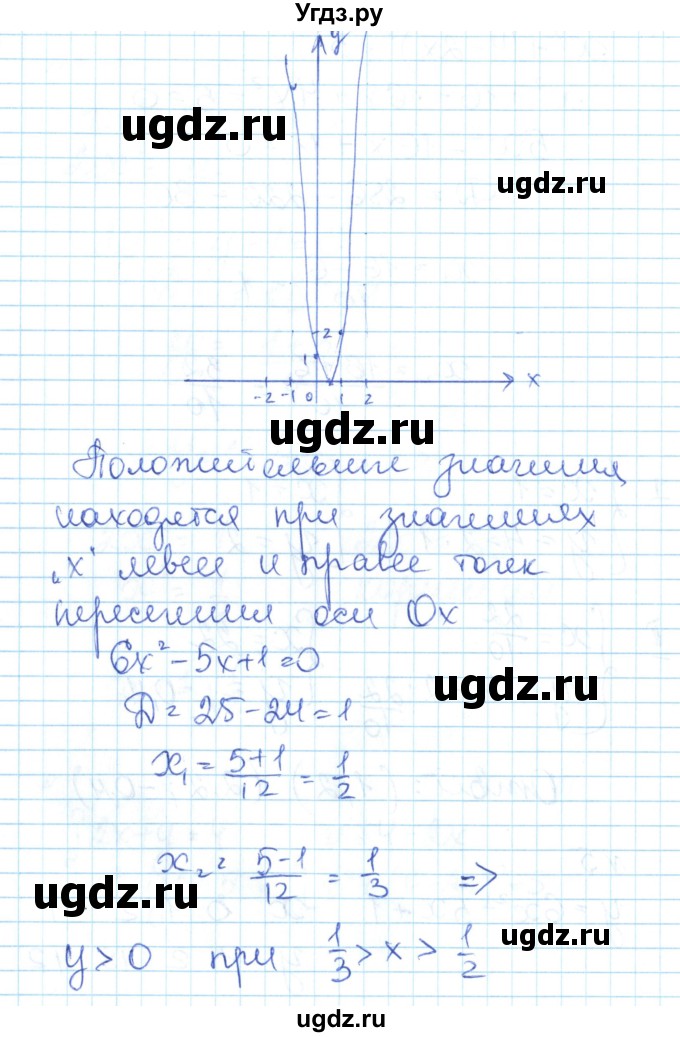 Угдз.ру
y
ugdz.ru
ugdz.ru
2
1
-2 -1 0 1 2 x
ugdz.ru
Положительные значения
находятся при значениях
„x“ левее и правее точек
пересечения оси Ox
6x² - 5x + 1 = 0
ugdz.ru
D = 25 - 24 = 1
x₁ = (5+1)/12 = 1/2
x₂ = (5-1)/12 = 1/3 =>
ugdz.ru
ugdz.ru
y > 0 при 1/3 > x > 1/2
ugdz.ru